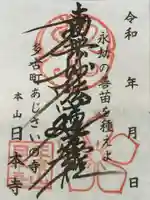 令和 年 月 日
永劫の善苗を種えよ
南無妙法蓮華経
多古町あじさいの寺
本山 日本寺